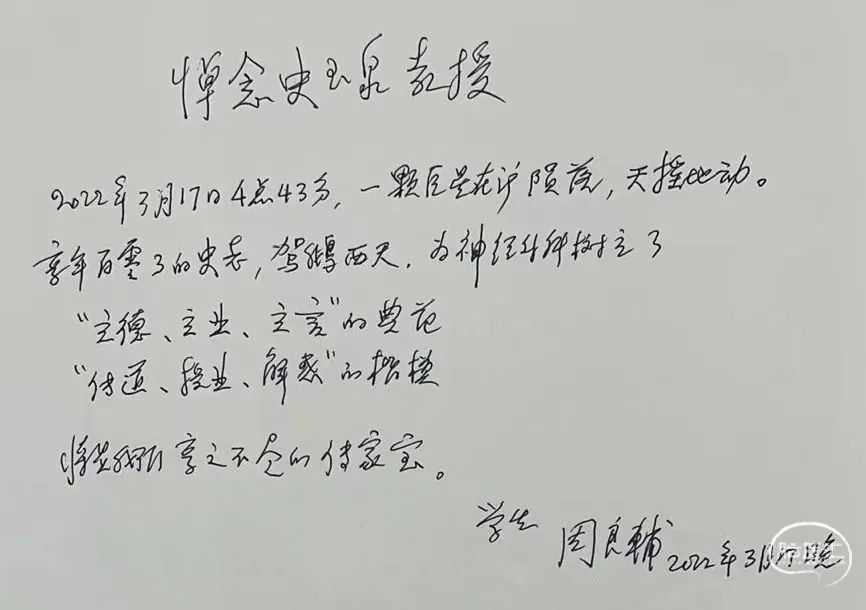 悼念史玉泉教授
2022年3月17日4点43分，一颗巨星在沪陨落，天摇地动。
享年百零3的史老，驾鹤西天，为神经外科树立了
“立德、立业、立言”的典范
“传道、授业、解惑”的楷模
将是我们享之不尽的传家宝。
学生 周良輔 2022年3月17晚